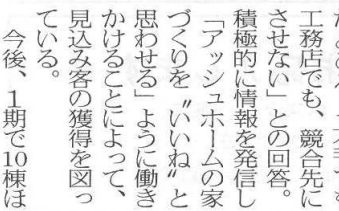 工務店でも、競合先に
させない」との回答。
積極的に情報を発信し
「アッシュホームの家
づくりを〝いいね〟と
思わせる」ように働き
かけることによって、
見込み客の獲得を図っ
ている。
今後、1期で10棟ほ